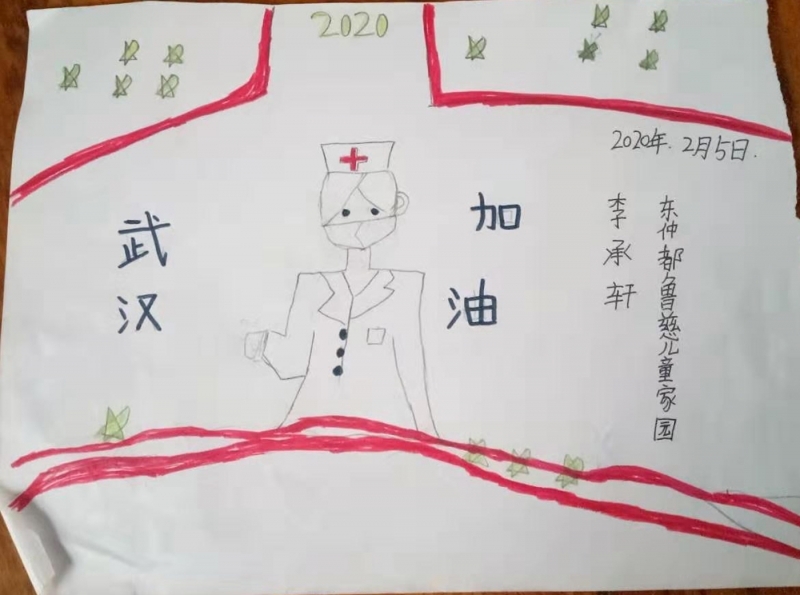 2020
2020年.2月5日.
武汉
加油
李承轩
东仲都鲁慈儿童家园